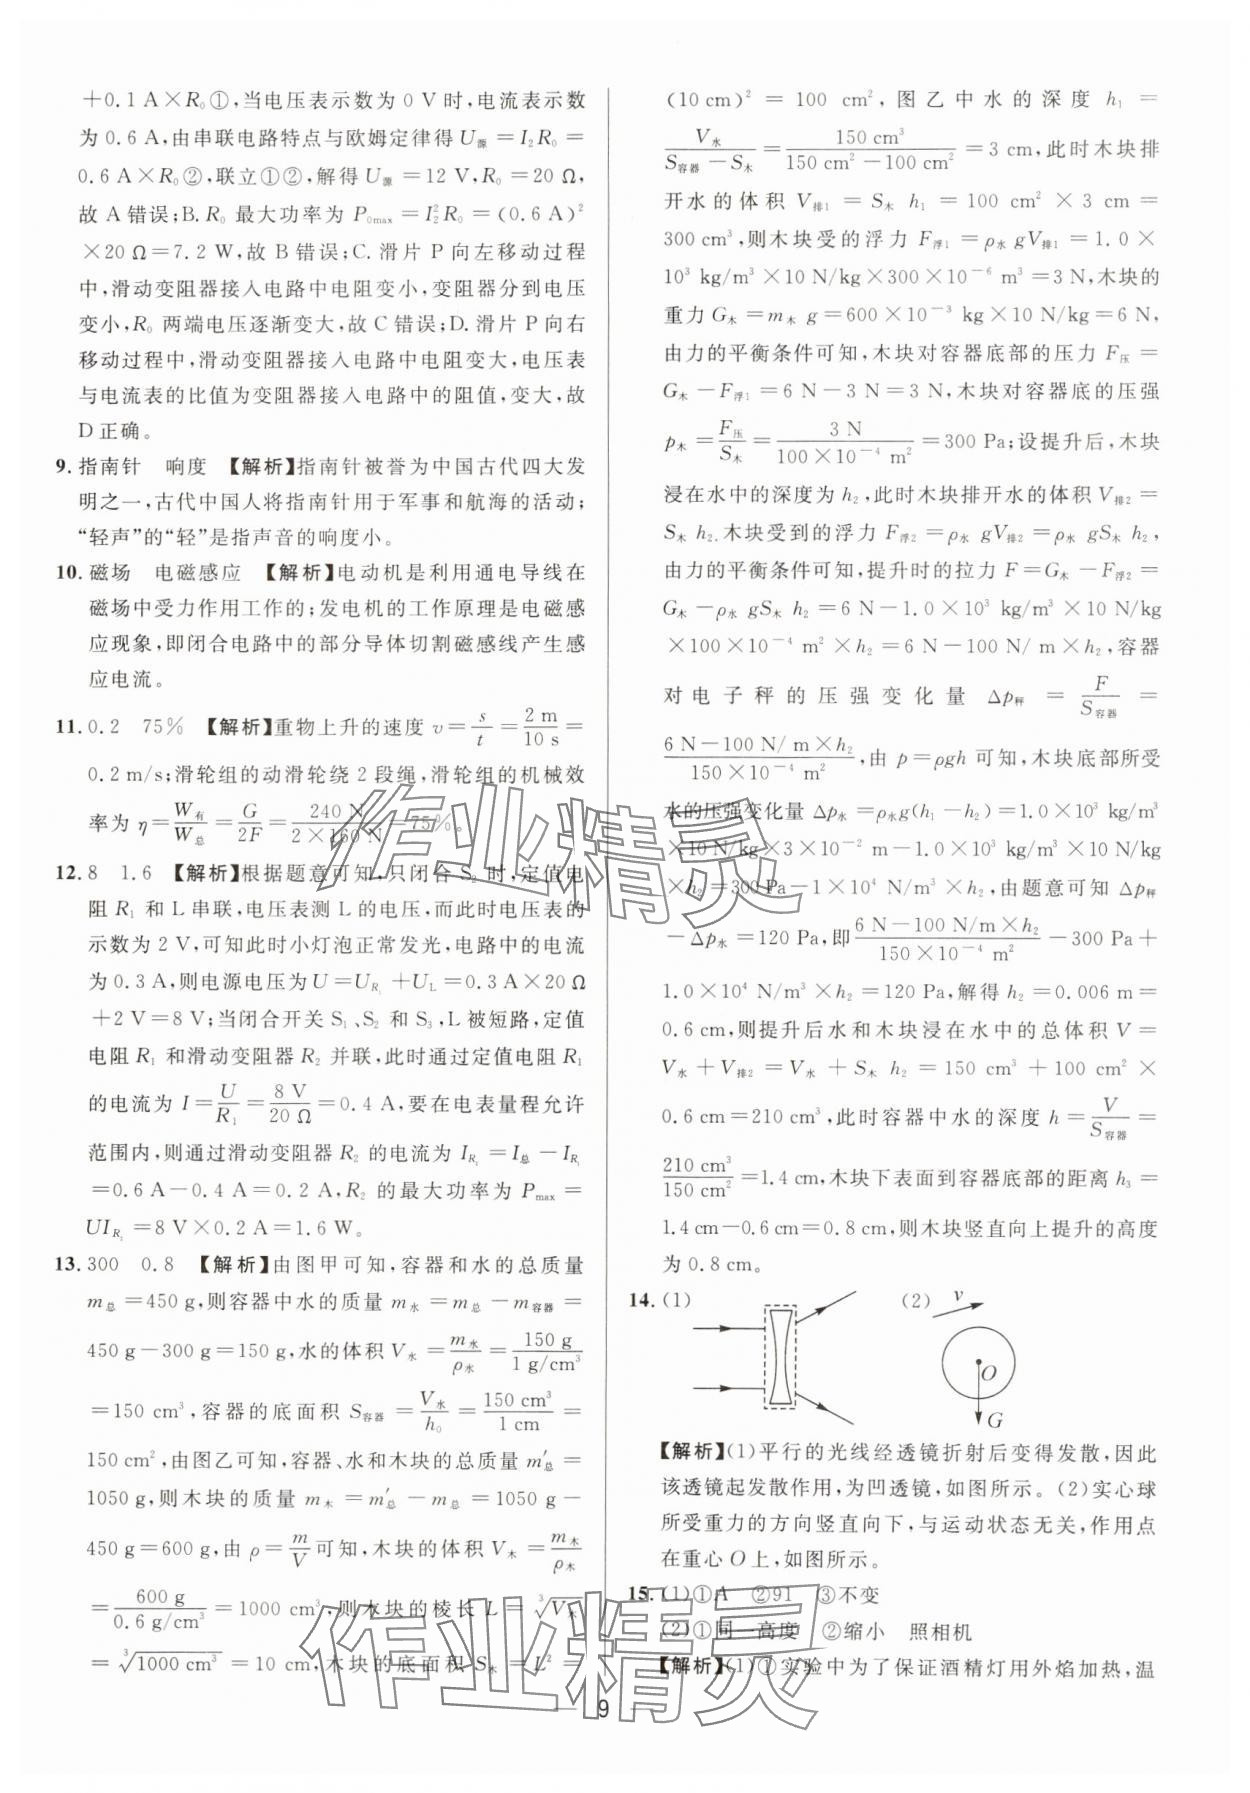 ＋0.1 A×R₀①,当电压表示数为 0 V时,电流表示数
为 0.6 A,由串联电路特点与欧姆定律得 U源＝I₂R₀＝
0.6 A×R₀②,联立①②,解得 U源＝12 V,R₀＝20 Ω,
故 A错误;B. R₀ 最大功率为 P₀max＝I₂²R₀＝(0.6 A)²
×20 Ω＝7.2 W,故 B 错误;C. 滑片 P 向左移动过程
中,滑动变阻器接入电路中电阻变小,变阻器分到电压
变小,R₀ 两端电压逐渐变大,故 C 错误;D. 滑片 P 向右
移动过程中,滑动变阻器接入电路中电阻变大,电压表
与电流表的比值为变阻器接入电路中的阻值,变大,故
D 正确。
9. 指南针　响度　【解析】指南针被誉为中国古代四大发
明之一,古代中国人将指南针用于军事和航海的活动;
“轻声”的“轻”是指声音的响度小。
10. 磁场　电磁感应　【解析】电动机是利用通电导线在
磁场中受力作用工作的;发电机的工作原理是电磁感
应现象,即闭合电路中的部分导体切割磁感线产生感
应电流。
11. 0.2　75%　【解析】重物上升的速度 v＝s/t＝2 m/10 s＝
0.2 m/s;滑轮组的动滑轮绕 2 段绳,滑轮组的机械效
率为 η＝W有/W总＝G/2F＝240 N/2×160 N＝75%。
12. 8　1.6　【解析】根据题意可知,只闭合 S₂ 时,定值电
阻 R₁ 和 L 串联,电压表测 L 的电压,而此时电压表的
示数为 2 V,可知此时小灯泡正常发光,电路中的电流
为 0.3 A,则电源电压为 U＝U_R₁＋U_L＝0.3 A×20 Ω
＋2 V＝8 V;当闭合开关 S₁、S₂ 和 S₃,L 被短路,定值
电阻 R₁ 和滑动变阻器 R₂ 并联,此时通过定值电阻 R₁
的电流为 I＝U/R₁＝8 V/20 Ω＝0.4 A,要在电表量程允许
范围内,则通过滑动变阻器 R₂ 的电流为 I_R₂＝I总－I_R₁
＝0.6 A－0.4 A＝0.2 A,R₂ 的最大功率为 Pmax＝
UI_R₂＝8 V×0.2 A＝1.6 W。
13. 300　0.8　【解析】由图甲可知,容器和水的总质量
m总＝450 g,则容器中水的质量 m水＝m总－m容器＝
450 g－300 g＝150 g,水的体积 V水＝m水/ρ水＝150 g/1 g/cm³
＝150 cm³,容器的底面积 S容器＝V水/h₀＝150 cm³/1 cm＝
150 cm²,由图乙可知,容器、水和木块的总质量 m′总＝
1050 g,则木块的质量 m木＝m′总－m总＝1050 g－
450 g＝600 g,由 ρ＝m/V可知,木块的体积 V木＝m木/ρ木
＝600 g/0.6 g/cm³＝1000 cm³,则木块的棱长 L＝³√V木
＝³√1000 cm³＝10 cm,木块的底面积 S木＝L²＝
(10 cm)²＝100 cm²,图乙中水的深度 h₁＝
V水/S容器－S木＝150 cm³/150 cm²－100 cm²＝3 cm,此时木块排
开水的体积 V排1＝S木 h₁＝100 cm²×3 cm＝
300 cm³,则木块受的浮力 F浮1＝ρ水 gV排1＝1.0×
10³ kg/m³×10 N/kg×300×10⁻⁶ m³＝3 N,木块的
重力 G木＝m木 g＝600×10⁻³ kg×10 N/kg＝6 N,
由力的平衡条件可知,木块对容器底部的压力 F压＝
G木－F浮1＝6 N－3 N＝3 N,木块对容器底的压强
p木＝F压/S木＝3 N/100×10⁻⁴ m²＝300 Pa;设提升后,木块
浸在水中的深度为 h₂,此时木块排开水的体积 V排2＝
S木 h₂.木块受到的浮力 F浮2＝ρ水 gV排2＝ρ水 gS木 h₂,
由力的平衡条件可知,提升时的拉力 F＝G木－F浮2＝
G木－ρ水 gS木 h₂＝6 N－1.0×10³ kg/m³×10 N/kg
×100×10⁻⁴ m²×h₂＝6 N－100 N/ m×h₂,容器
对电子秤的压强变化量 Δp秤＝F/S容器＝
6 N－100 N/ m×h₂/150×10⁻⁴ m²,由 p＝ρgh 可知,木块底部所受
水的压强变化量 Δp水＝ρ水g(h₁－h₂)＝1.0×10³ kg/m³
×10 N/kg×3×10⁻² m－1.0×10³ kg/m³×10 N/kg
×h₂＝300 Pa－1×10⁴ N/m³×h₂,由题意可知 Δp秤
－Δp水＝120 Pa,即6 N－100 N/m×h₂/150×10⁻⁴ m²－300 Pa＋
1.0×10⁴ N/m³×h₂＝120 Pa,解得 h₂＝0.006 m＝
0.6 cm,则提升后水和木块浸在水中的总体积 V＝
V水＋V排2＝V水＋S木 h₂＝150 cm³＋100 cm²×
0.6 cm＝210 cm³,此时容器中水的深度 h＝V/S容器＝
210 cm³/150 cm²＝1.4 cm,木块下表面到容器底部的距离 h₃＝
1.4 cm－0.6 cm＝0.8 cm,则木块竖直向上提升的高度
为 0.8 cm。
14. (1)　(2)
v
O
G
【解析】(1)平行的光线经透镜折射后变得发散,因此
该透镜起发散作用,为凹透镜,如图所示。(2)实心球
所受重力的方向竖直向下,与运动状态无关,作用点
在重心 O 上,如图所示。
15. (1)①A　②91　③不变
(2)①同一高度　②缩小　照相机
【解析】(1)①实验中为了保证酒精灯用外焰加热,温
9
作业精灵
作业精灵